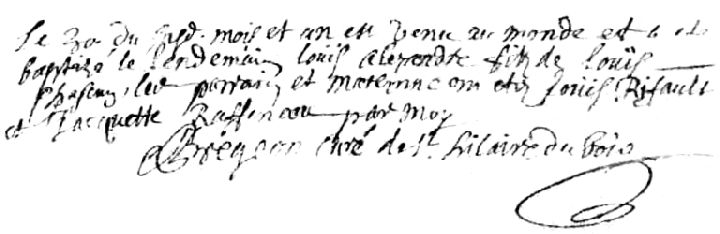 Le 30 du susd. mois et an est venu au monde et a et
baptizé le lendemain louis alexendre fils de louis
les parrain et marenne ont ete Louis Rifault
et Jacquette Raffineau par moy
Gregoon curé de st. hilaire du bois